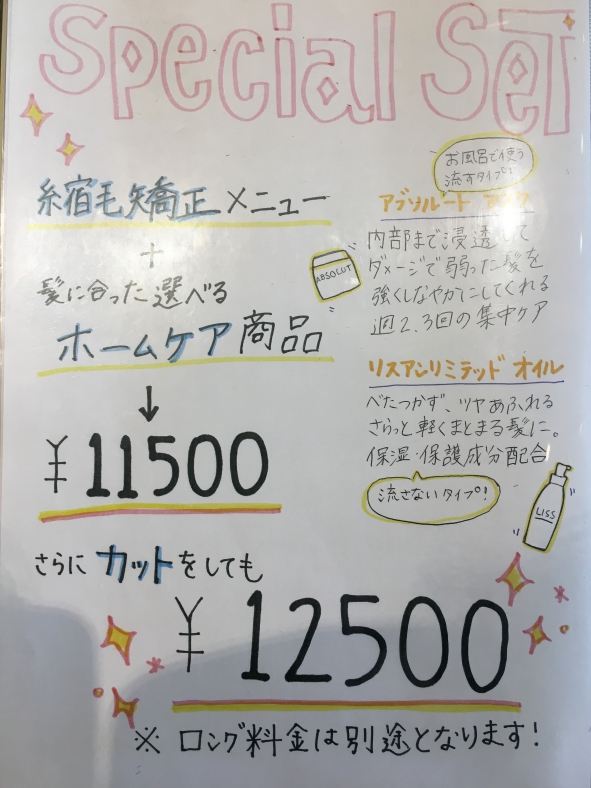 Special Set
縮毛矯正メニュー
+
髪に合った選べる
ホームケア商品
↓
¥11500
さらにカットをしても
¥12500
※ ロング料金は別途となります!
お風呂で使う
流すタイプ!
アブソルート
内部まで浸透して
ダメージで弱った髪を
強くしなやかにしてくれる
週2.3回の集中ケア
ABSOLUT
リスアンリミテッド オイル
べたつかず、ツヤあふれる
さらっと軽くまとまる髪に。
保湿・保護成分配合
流さないタイプ!
LISS